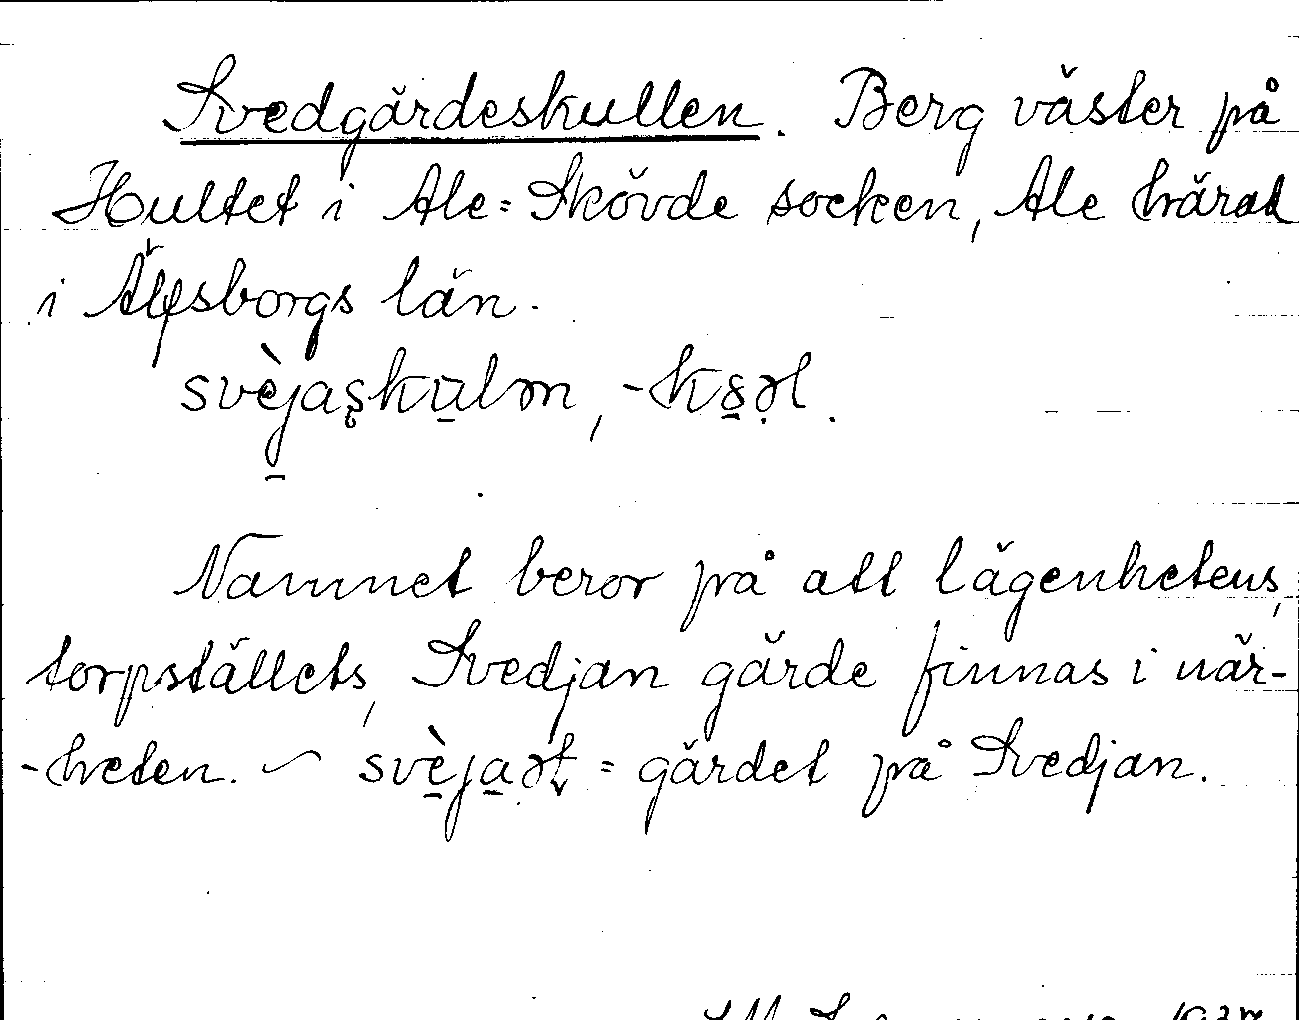 Svedgärdeskullen. Berg väster på
Hultet i Ale=Skövde socken, Ale härad
i Älfsborgs län.
svèjaʂkulən,
Namnet beror på att lägenhetens,
torpställets, Svedjan gärde finnas i när-
-heten. ~ = gärdet på Svedjan.